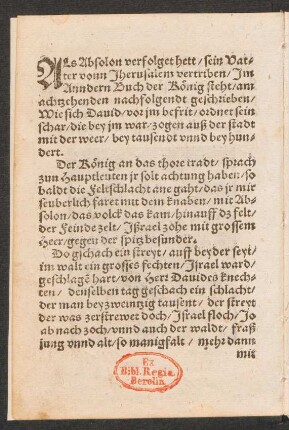 ALs Absolon verfolget hett / sein Vat-
ter vonn Jherusalem vertriben / Im
Anndern Buch der König steht / am
achtzehenden nachfolgendt geschrieben /
Wie sich Dauid / vor jm befrit / ordnet sein
schar / die bey jm war / zogen auß der stadt
mit der weer / bey tausendt vnnd bey hun-
dert.
Der König an das thore tradt / sprach
zun Hauptleuten jr solt achtung haben / so
baldt die Feltschlacht ane gaht / das jr mir
seuberlich faret mit dem knaben / mit Ab-
solon / das volck das kam / hinauff dz felt /
der Feinde zelt / Jßrael zohe mit grossem
Heer / gegen der spitz besunder.
Do gschach ein streyt / auff beyder seyt /
im walt ein grosses fechten / Jsrael ward /
geschlagē hart / von Herr Dauides knech-
ten / denselben tag geschach ein schlacht /
der man beyzweintzig tausent / der streyt
der was zerstrewet doch / Jsrael floch / Jo
ab nach zoch / vnnd auch der waldt / fraß
jung vnnd alt / so manigfalt / mehr dann
mit
Ex
Bibl. Regia
Berolin.